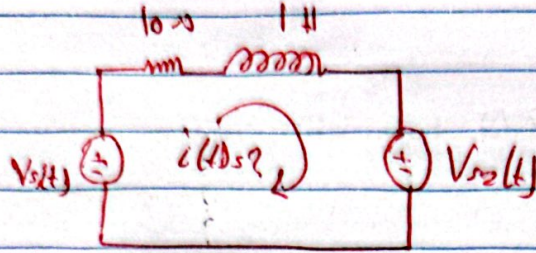 10 Ω 1 H
Vs(t) i(t)? Vs2(t)